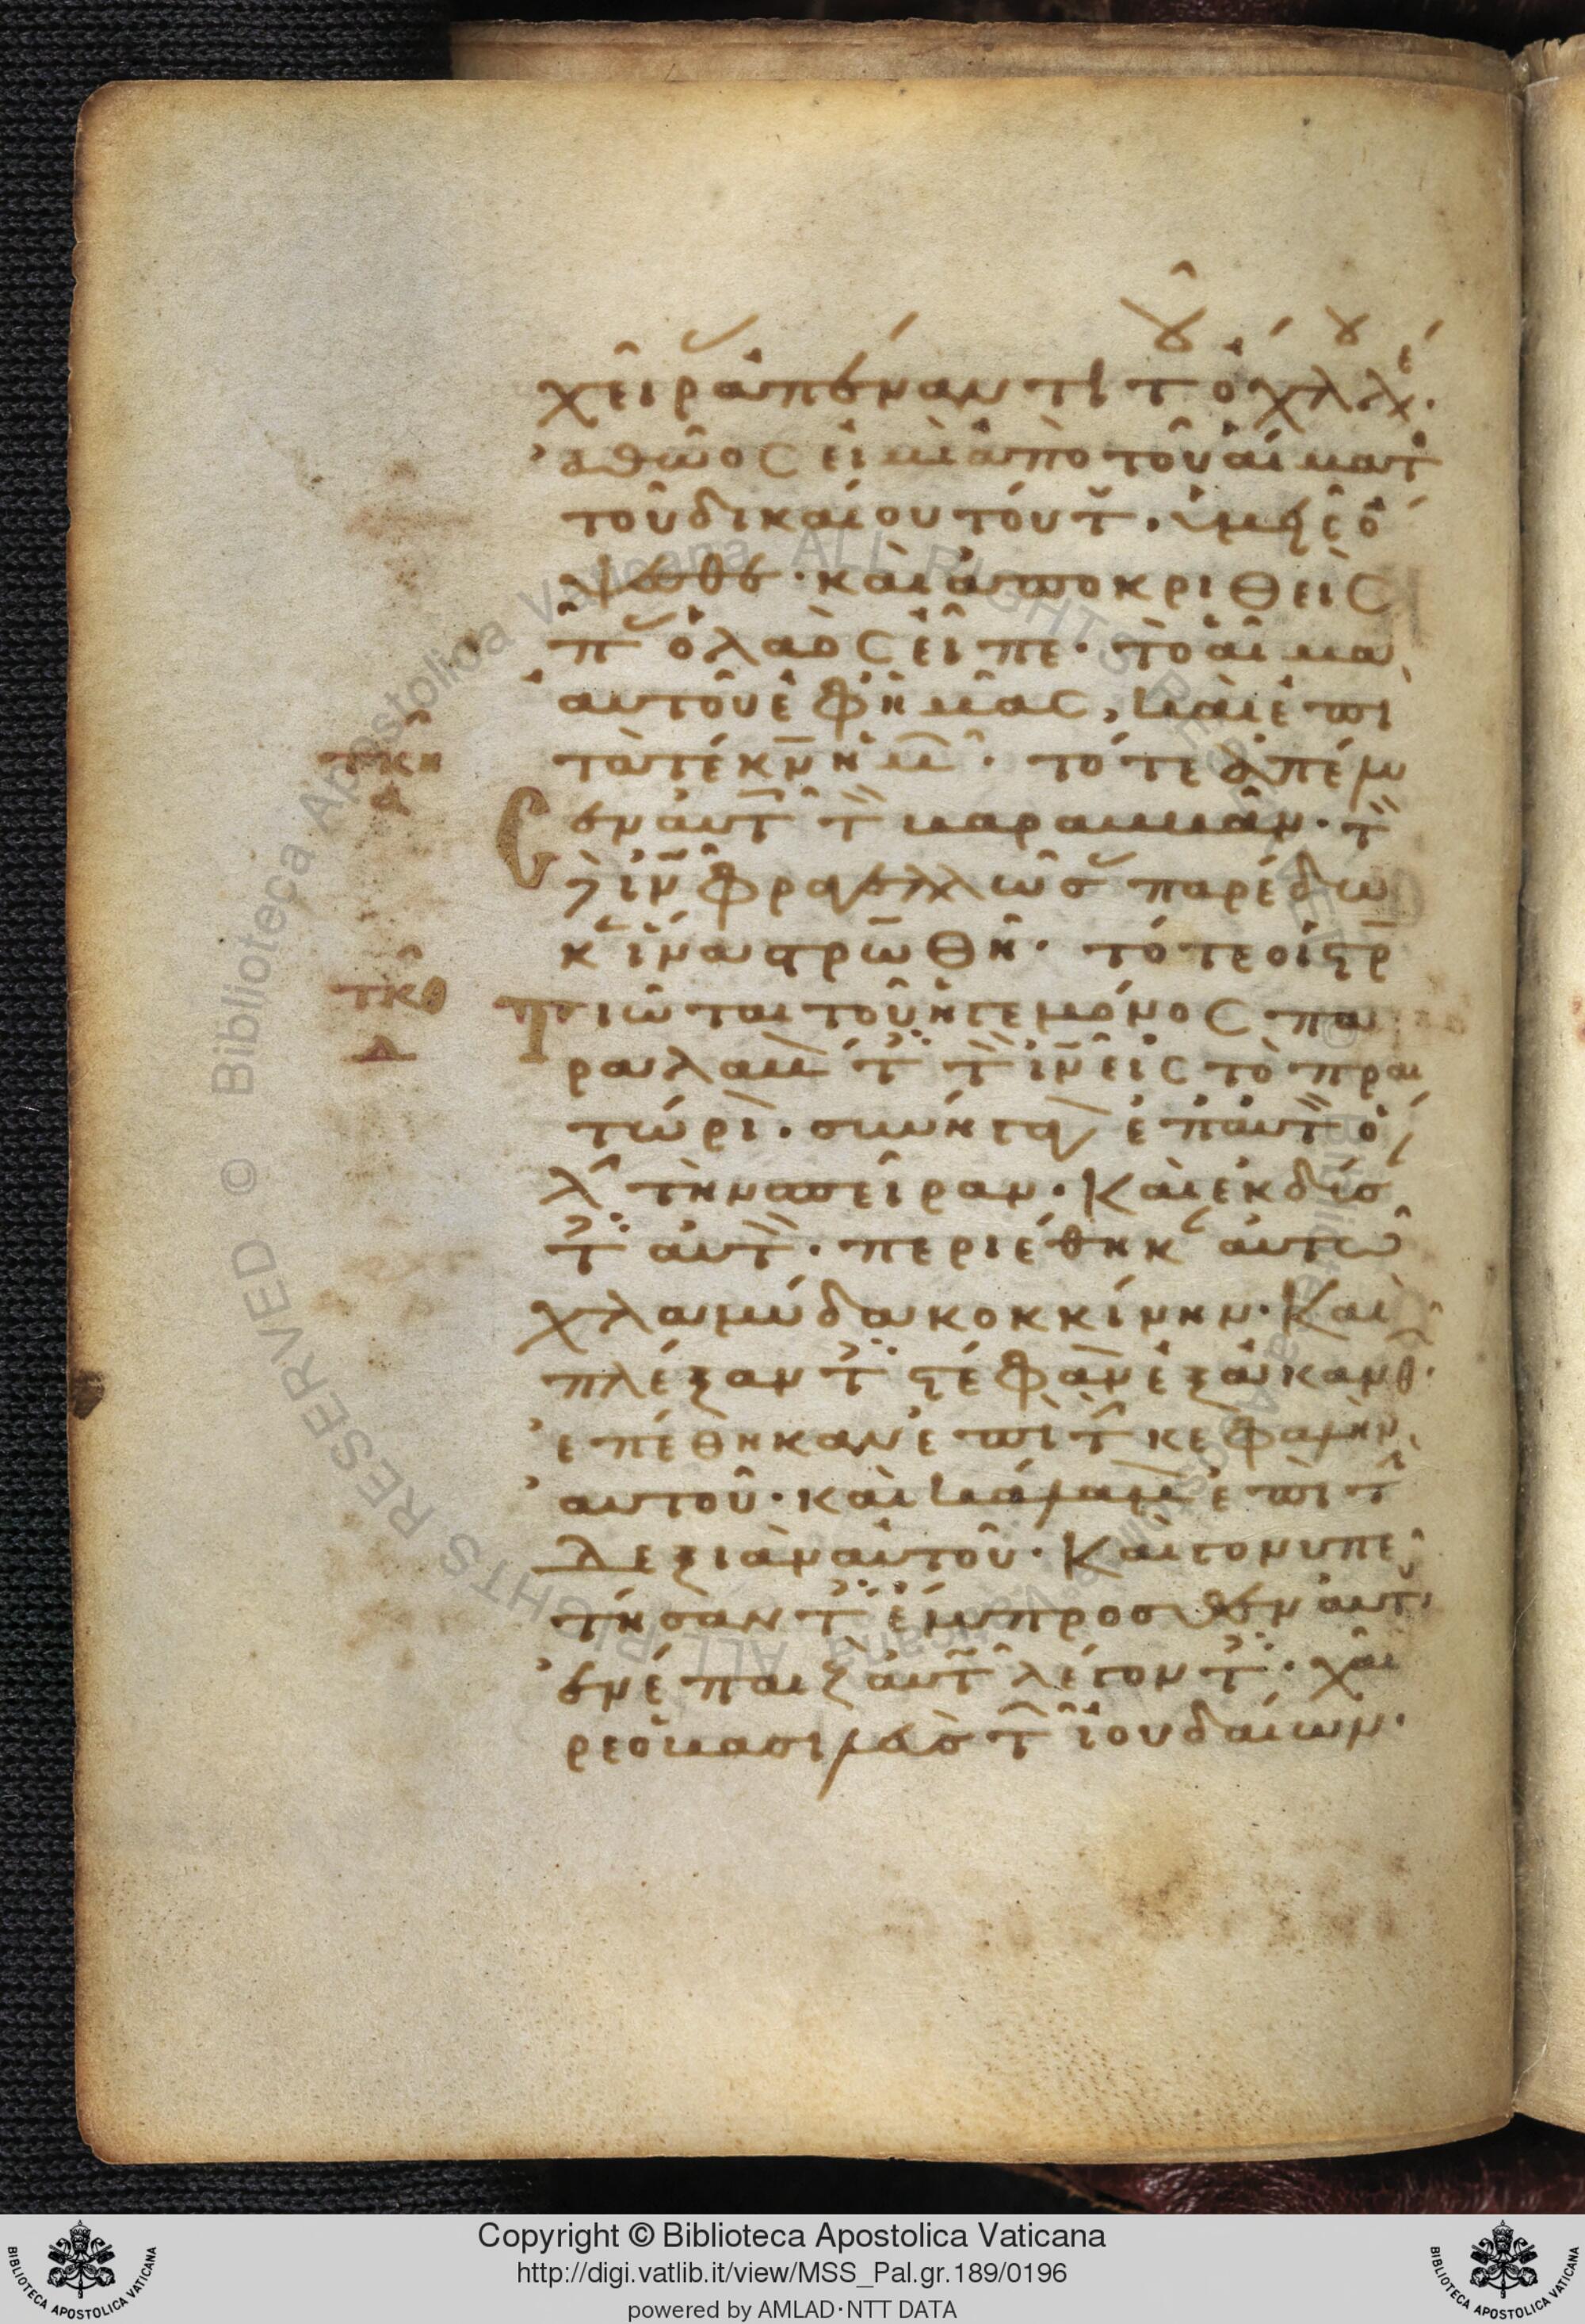 χεῖρ ἀπέναντι τ ὀχλ λέγ·
ἀθῶος εἰμὶ ἀπὸ τοῦ αἵματ
τοῦ δικαίου τούτ· ὑμεῖς ὄ
ψεσθε· καὶ ἀποκριθεὶς
π ὁ λαὸς εἶπε· τὸ αἷμα
αὐτοῦ ἐφ ἡμᾶς, καὶ ἐπὶ
τὰ τέκν ἡμ· τότε ἀπέλυ
τκη
α
σεν αὐτ τ βαραββᾶν· τ
δὲ ιν φραγελλώσ παρέδω
κ ἵνα στρωθῆ· τότε οἱ στρ
τκθ
Δ
τιῶται τοῦ ἡγεμόνος πα
ραλαβ τ τ ιν εἰς τὸ πραι
τώρι· συνήγαγ ἐπ αὐτ ὅ
λ τὴν σπεῖραν· Καὶ ἐκδύσ
τ αὐτ· περιέθηκ αὐτῶ
χλαμύδα κοκκίνην· Καὶ
πλέξαντ στέφαν ἐξ ἀκανθ·
ἐπέθηκαν ἐπὶ τ κεφαλὴν
αὐτοῦ· καὶ κάλαμ ἐπὶ τ
δεξιὰν αὐτοῦ· Καὶ γονυπε
τήσαντ ἔμπροσθεν αὐτ
ἐνέπαιζ αὐτ λέγοντ· χαῖ
ρε ὁ βασιλεὺσ τ ἰουδαίων·
Copyright © Biblioteca Apostolica Vaticana
http://digi.vatlib.it/view/MSS_Pal.gr.189/0196
powered by AMLAD·NTT DATA
BIBLIOTECA APOSTOLICA VATICANA
BIBLIOTECA APOSTOLICA VATICANA